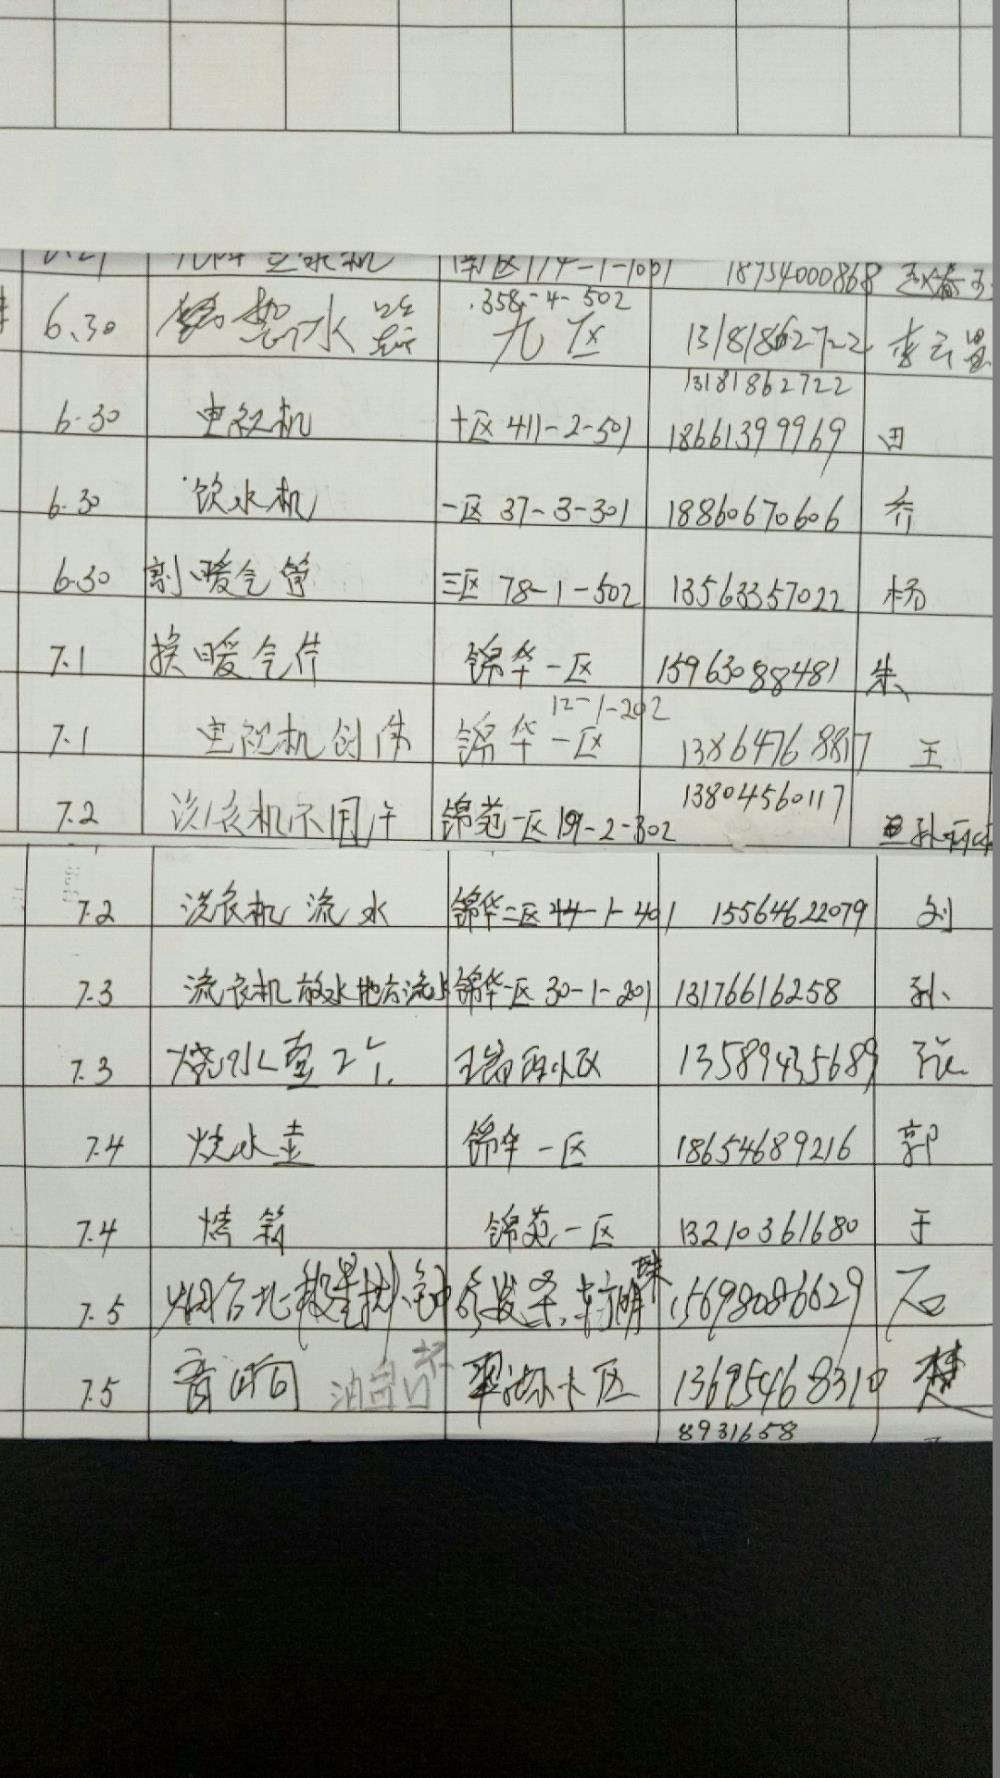 南区174-1-1001 18754000868
6.30 热水器 358-4-502 九区 13181862722 李云
13181862722
6.30 电视机 十区 411-2-501 18661399969 田
6.30 饮水机 一区 37-3-301 18860670606 乔
6.30 割暖气管 三区 78-1-502 13563357022 杨
7.1 换暖气片 锦华一区 15963088481 朱
12-1-202
7.1 电视机 锦华一区 13864768817 王
7.2 洗衣机不甩干 锦苑一区 19-2-302 13804560117 孙
7.2 洗衣机流水 锦华二区 44-1-401 15564622079 刘
7.3 流衣机放水地方流水 锦华一区 30-1-201 13176616258 孙
7.3 烧水壶2个 小区 13589435689 张
7.4 烧水壶 锦华一区 18654689216 郭
7.4 烤箱 锦苑一区 13210361680 于
7.5 烟台北极星挂钟 15698086629 石
7.5 音响 油烟 区 13695468310 楚
8931658